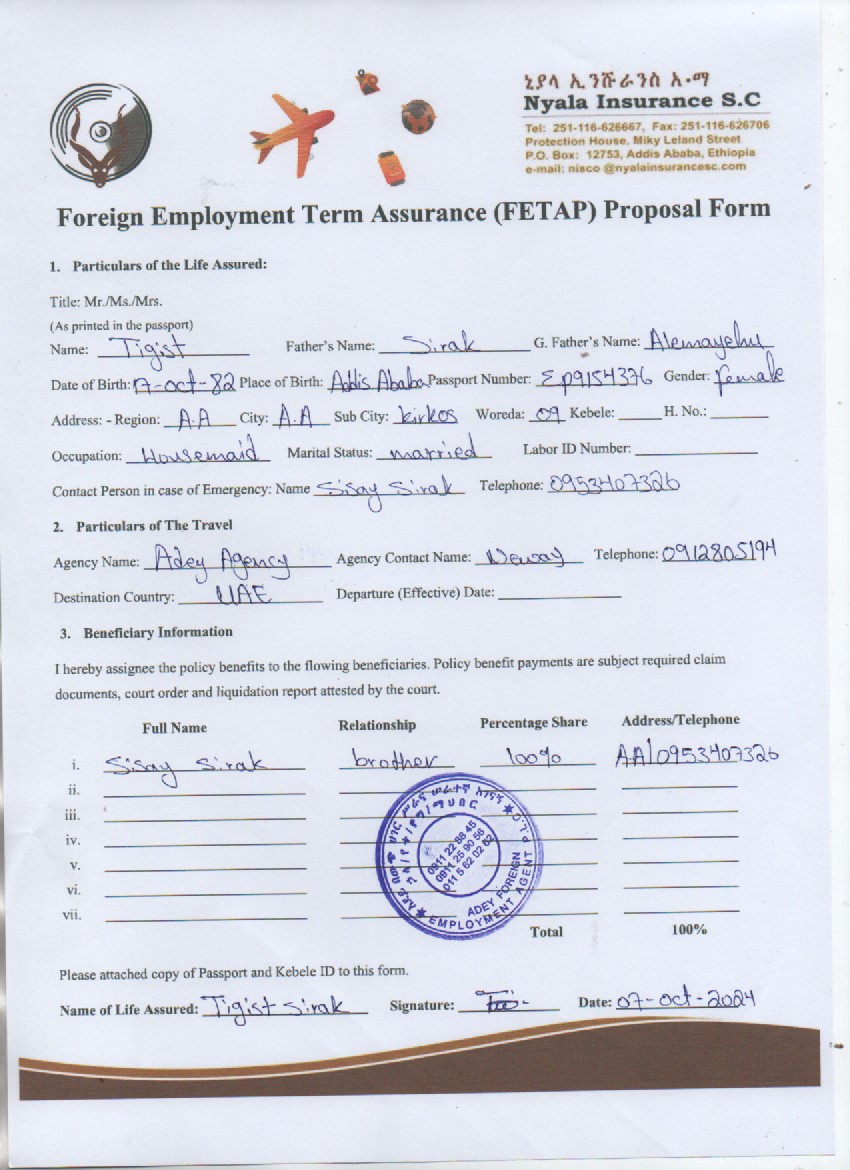 ኒያላ ኢንሹራንስ አ.ማ
Nyala Insurance S.C
Tel: 251-116-626667, Fax: 251-116-626706
Protection House, Miky Leland Street
P.O. Box: 12753, Addis Ababa, Ethiopia
e-mail: nisco @nyalainsurancesc.com
Foreign Employment Term Assurance (FETAP) Proposal Form
1. Particulars of the Life Assured:
Title: Mr./Ms./Mrs.
(As printed in the passport)
Name: Tigist Father's Name: Sirak G. Father's Name: Alemayehu
Date of Birth: 17-Oct-82 Place of Birth: Addis Ababa Passport Number: Ep9154376 Gender: female
Address: - Region: A.A City: A.A Sub City: kirkos Woreda: 09 Kebele: H. No.:
Occupation: Housemaid Marital Status: married Labor ID Number:
Contact Person in case of Emergency: Name Sisay Sirak Telephone: 0953407326
2. Particulars of The Travel
Agency Name: Adey Agency Agency Contact Name: Neway Telephone: 0912805194
Destination Country: UAE Departure (Effective) Date:
3. Beneficiary Information
I hereby assignee the policy benefits to the flowing beneficiaries. Policy benefit payments are subject required claim
documents, court order and liquidation report attested by the court.
Full Name Relationship Percentage Share Address/Telephone
i. Sisay Sirak brother 100% AA/0953407326
ii.
iii.
iv.
v.
vi.
vii.
0911 22 88 45
0911 25 90 56
011 5 62 02 62
ADEY FOREIGN
EMPLOYMENT AGENT
Total 100%
Please attached copy of Passport and Kebele ID to this form.
Name of Life Assured: Tigist Sirak Signature: Date: 07-Oct-2024